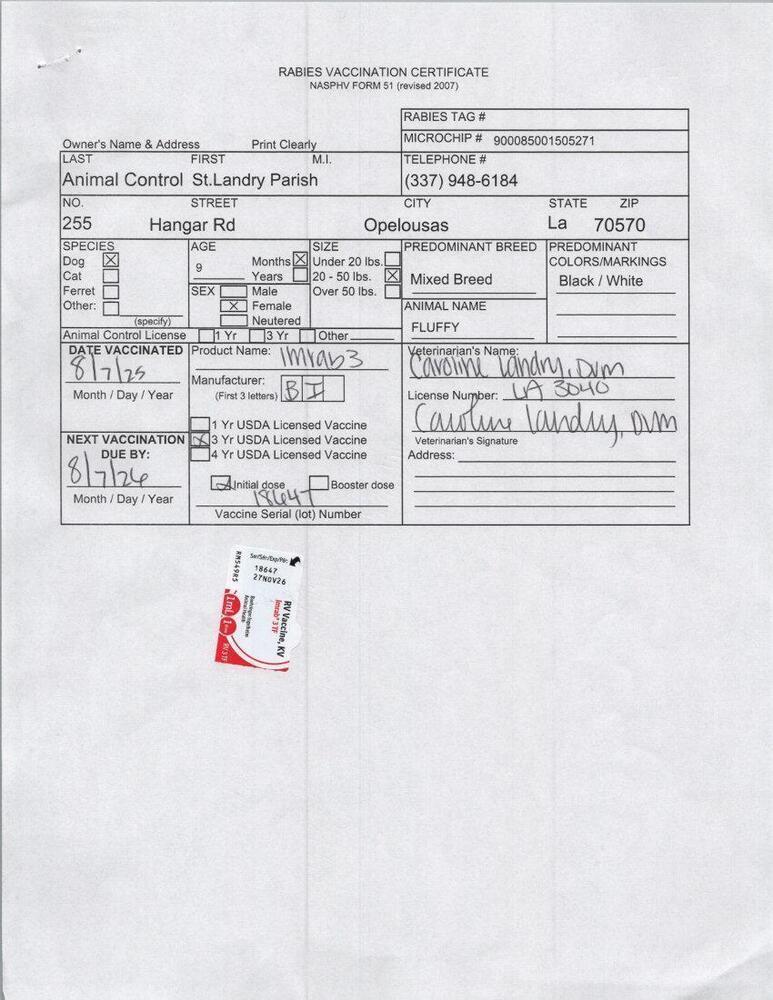 RABIES VACCINATION CERTIFICATE
NASPHV FORM 51 (revised 2007)
RABIES TAG #
Owner's Name & Address Print Clearly
MICROCHIP # 900085001505271
LAST FIRST M.I.
TELEPHONE #
Animal Control St.Landry Parish
(337) 948-6184
NO. STREET CITY STATE ZIP
255 Hangar Rd Opelousas La 70570
SPECIES
Dog
Cat
Ferret
Other:
(specify)
AGE
9
Months
Years
SEX
Male
Female
Neutered
SIZE
Under 20 lbs.
20 - 50 lbs.
Over 50 lbs.
PREDOMINANT BREED
Mixed Breed
PREDOMINANT
COLORS/MARKINGS
Black / White
ANIMAL NAME
FLUFFY
Animal Control License 1 Yr 3 Yr Other
DATE VACCINATED
8/7/25
Month / Day / Year
NEXT VACCINATION
DUE BY:
8/7/26
Month / Day / Year
Product Name: Imrab3
Manufacturer:
(First 3 letters) B I
1 Yr USDA Licensed Vaccine
3 Yr USDA Licensed Vaccine
4 Yr USDA Licensed Vaccine
Initial dose Booster dose
18647
Vaccine Serial (lot) Number
Veterinarian's Name:
Caroline Landry, DVM
License Number: LA 3040
Caroline Landry, DVM
Veterinarian's Signature
Address:
18647
27NOV26
RV Vaccine, KV
Imrab® 3 TF
Boehringer Ingelheim
Animal Health
1mL
RV.3 TF